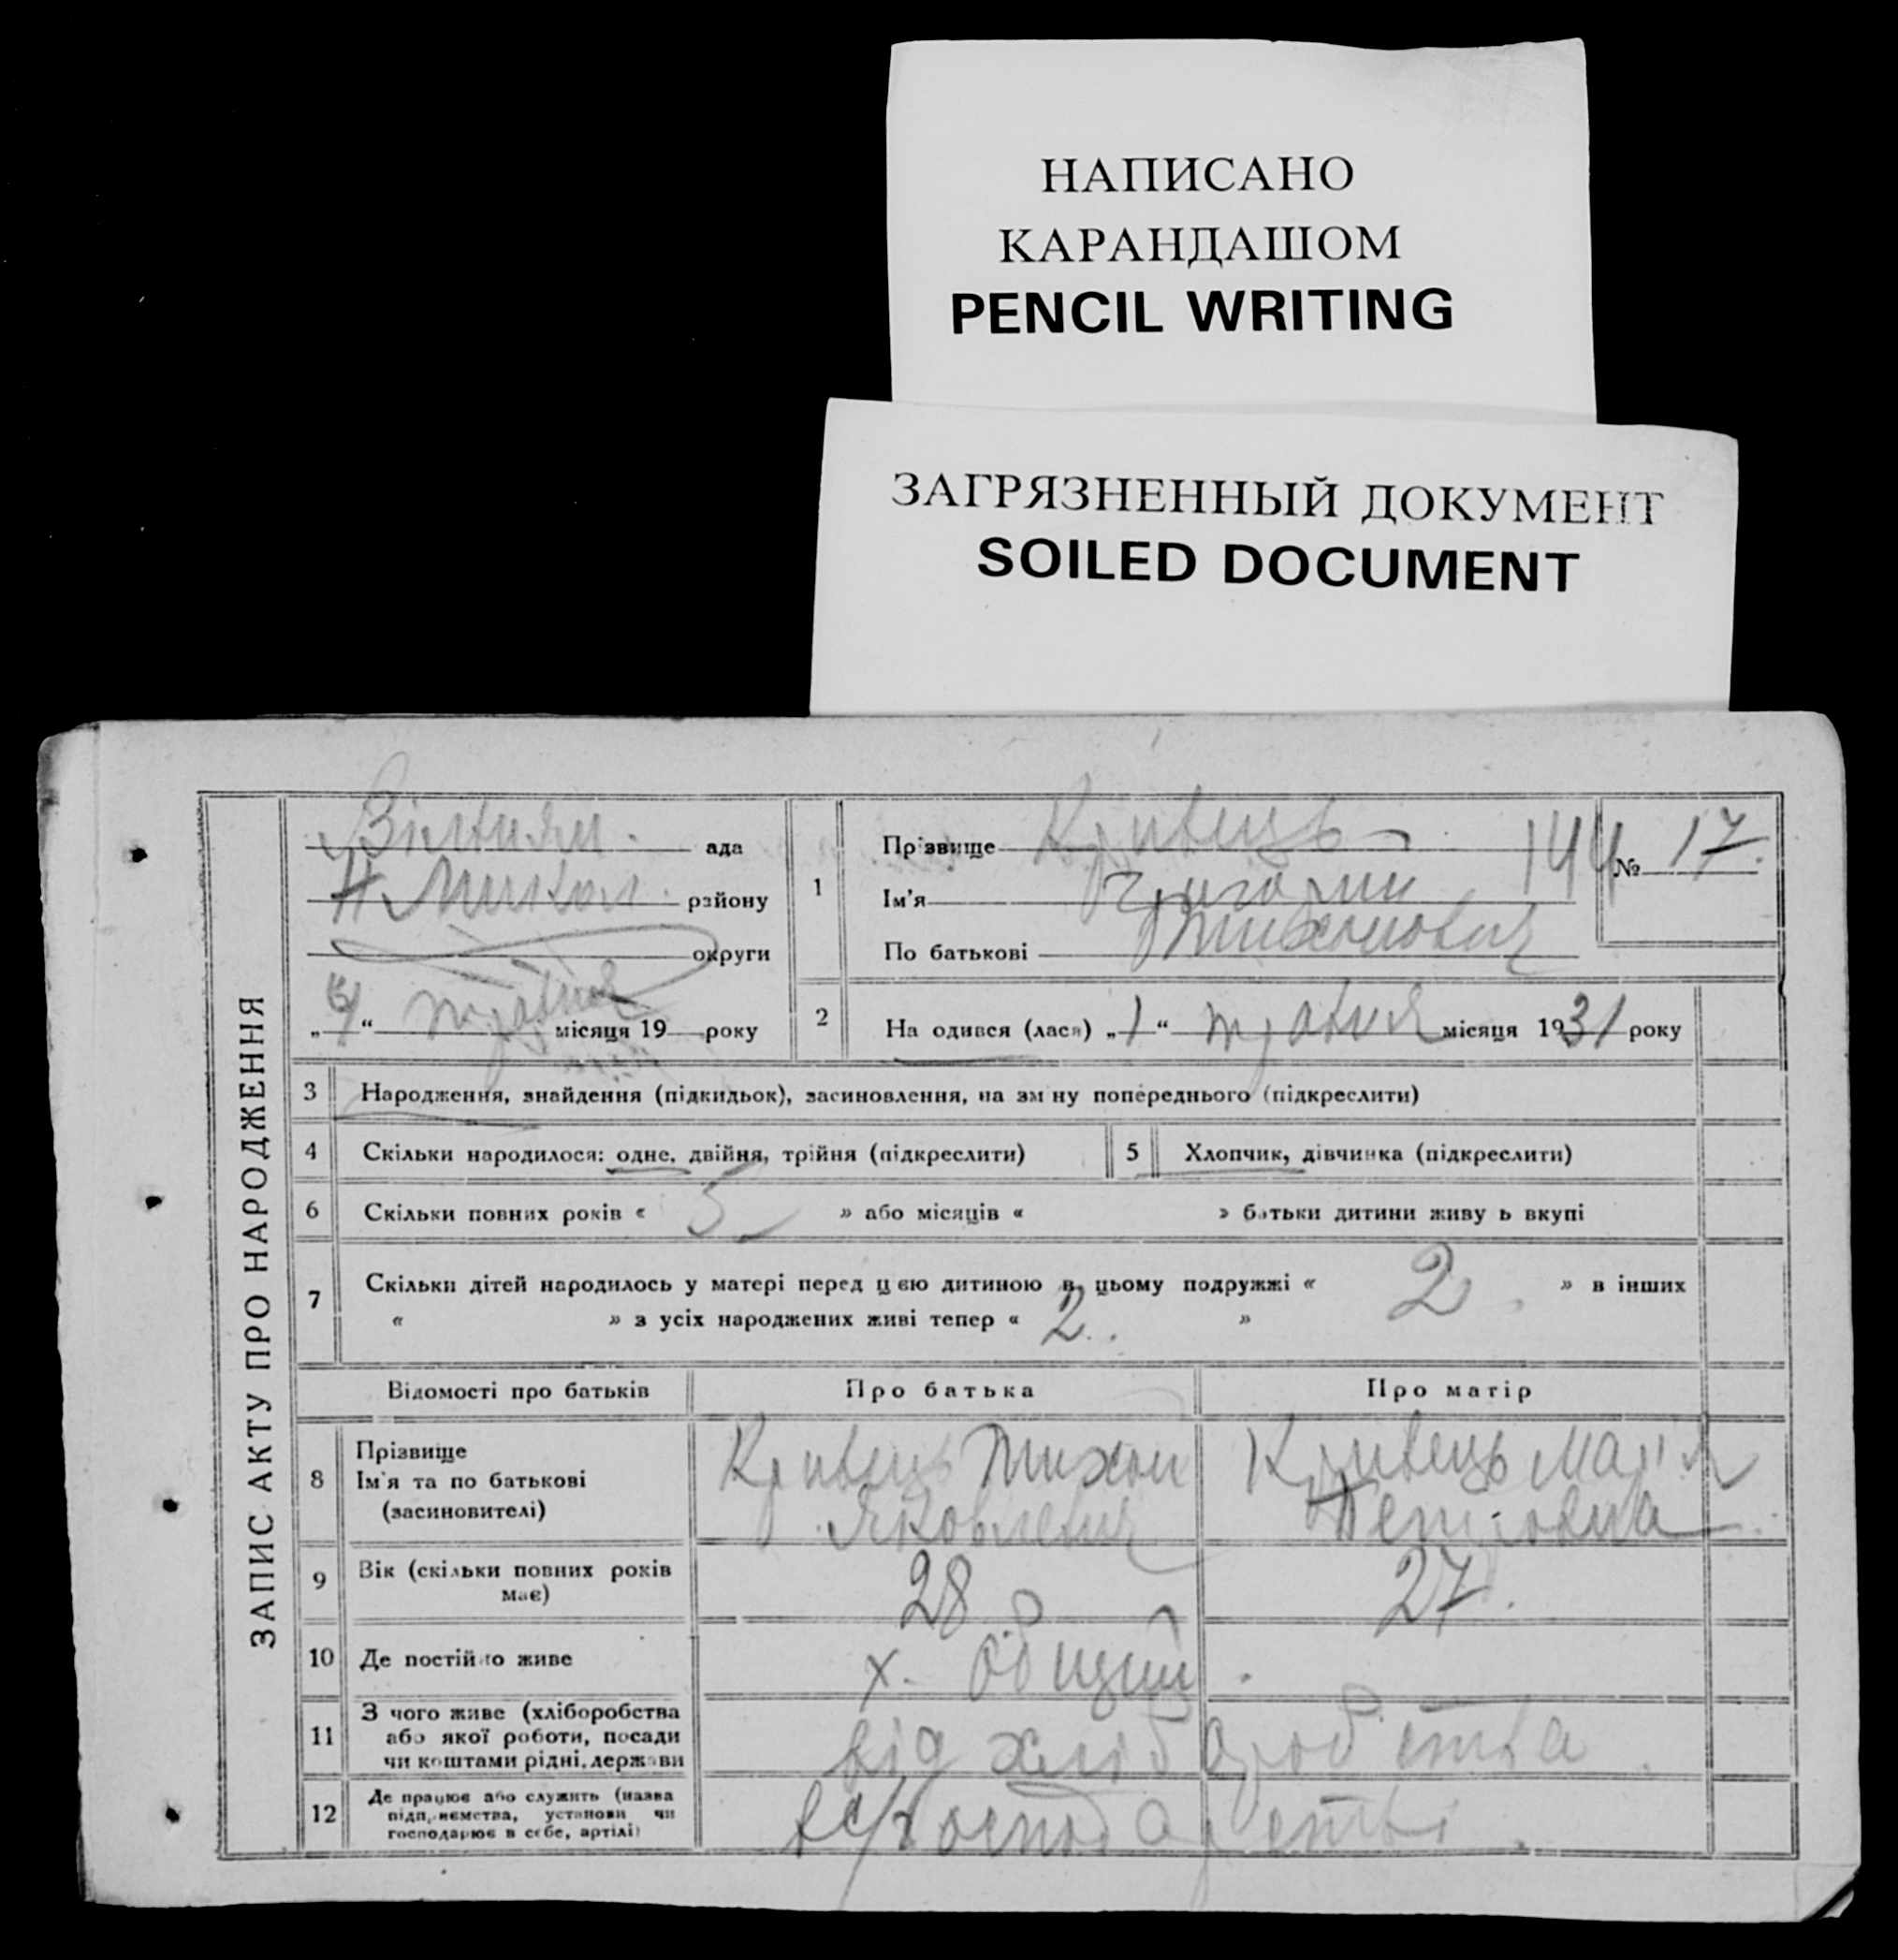 НАПИСАНО
КАРАНДАШОМ
PENCIL WRITING
ЗАГРЯЗНЕННЫЙ ДОКУМЕНТ
SOILED DOCUMENT
ЗАПИС АКТУ ПРО НАРОДЖЕННЯ
ада
району
округи
травня місяця 19 року
1
Прізвище Кривець
Ім'я Григорий
По батькові Тихонович
144
№ 17.
2 На одився (лася) „1“ травня місяця 1931 року
3 Народження, знайдення (підкидьок), засиновлення, на зм ну попереднього (підкреслити)
4 Скільки народилося: одне, двійня, трійня (підкреслити)
5 Хлопчик, дівчинка (підкреслити)
6 Скільки повних років « 5 » або місяців « » батьки дитини живу ь вкупі
7 Скільки дітей народилось у матері перед цією дитиною в цьому подружжі « 2 » в інших
« » з усіх народжених живі тепер « 2 »
Відомості про батьків Про батька Про матір
8 Прізвище
Ім'я та по батькові
(засиновителі)
Кривець Тихон
Яковлевич
Кривець Марія
Петровна
9 Вік (скільки повних років
має)
28
27.
10 Де постійно живе
х. Общий
11 З чого живе (хліборобства
або якої роботи, посади
чи коштами рідні, держави
від хліборобства
12 Де працює або служить (назва
підприємства, установи чи
господарює в себе, артілі)
в с/господарстві.